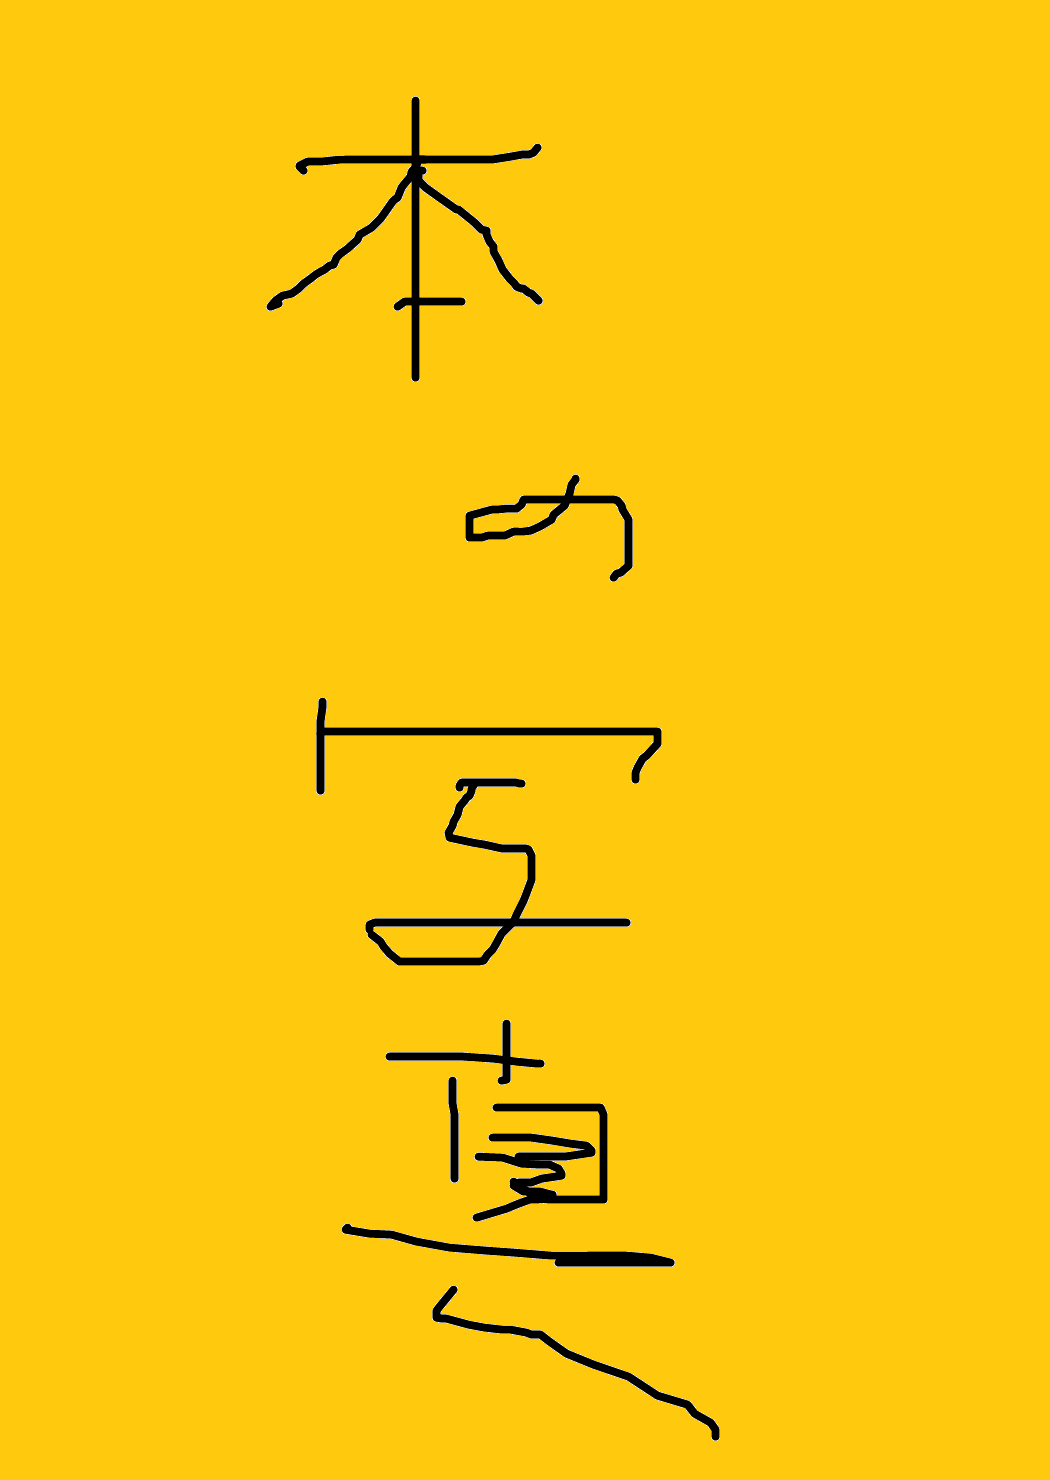 本の写真